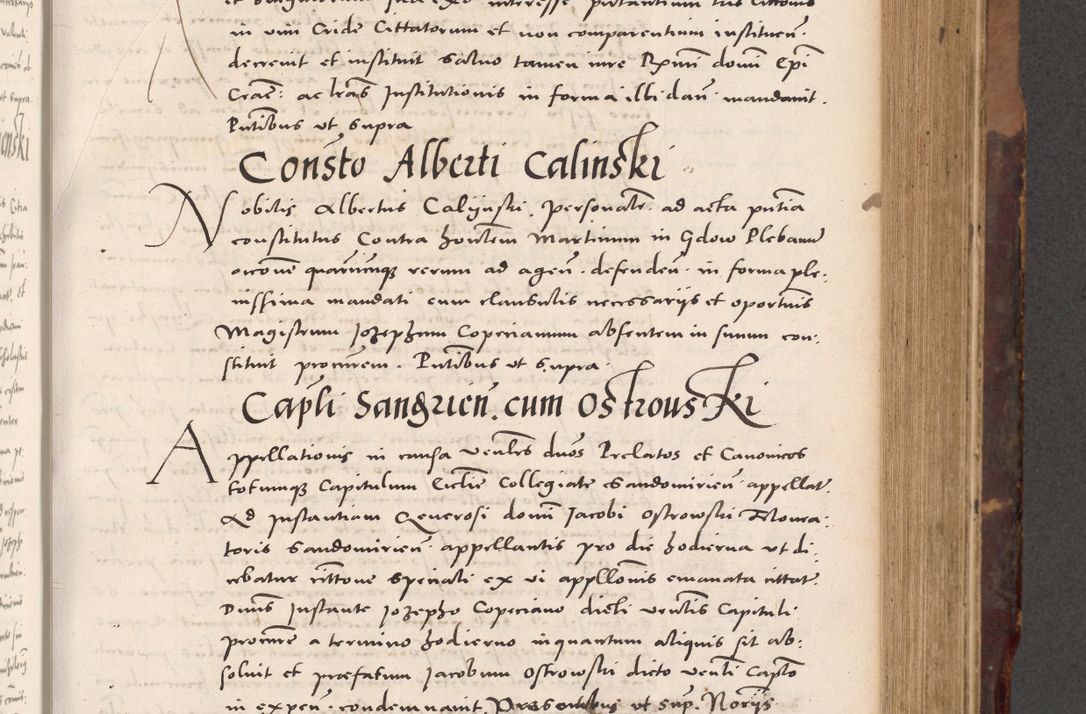 in vim Cride Cittatorum et non comparentium instituen̄.
decrevit et instituit salvo tamen iure Rx̄mi domi Ep̄i
Crac̄. ac lrās Institutionis in forma illi dan̄. mandavit.
Pn̄tibus ut supra
Consto Alberti Calinski
Nobilis Albertus Calijnski, personalr̄. ad acta pn̄tia
constitutus Contra hon̄tem Martinum in Gdow Plebanū
om̄ oīue quarumq̨ rerum ad agen̄. defenden̄. in forma ple:
nissima mandati cum clausulis necessarijs et oportūis
Magistrum Jozephum Copecianum absentem in suum con:
stituit procūrem. Pn̄tibus ut supra.
Capli Sandzicen̄. cum Ostrouski
Appellationis in causa venlēs duōs Prelatos et Canonicos
totumq̨ Capitulum Ecliē Collegiate Sandomirien̄. appellat̄.
Ad Instantiam Generosi domi Jacobi Ostrowski Moura:
toris Sandomirien̄. appellantis pro die hodierna ut di:
cebatur cittōne speciali ex vi appllōnis emanata cittat̄.
Dum̄s Instante Jozepho Copeciano dicti venlīs Capituli
procūre a termino hodierno inquantum aliquis sit ab:
solvit et præfatum Jacobum Ostrowski dicto venlī Capto
in expen̄. condemnavit. Presentibus ut sup̄. Norijs.